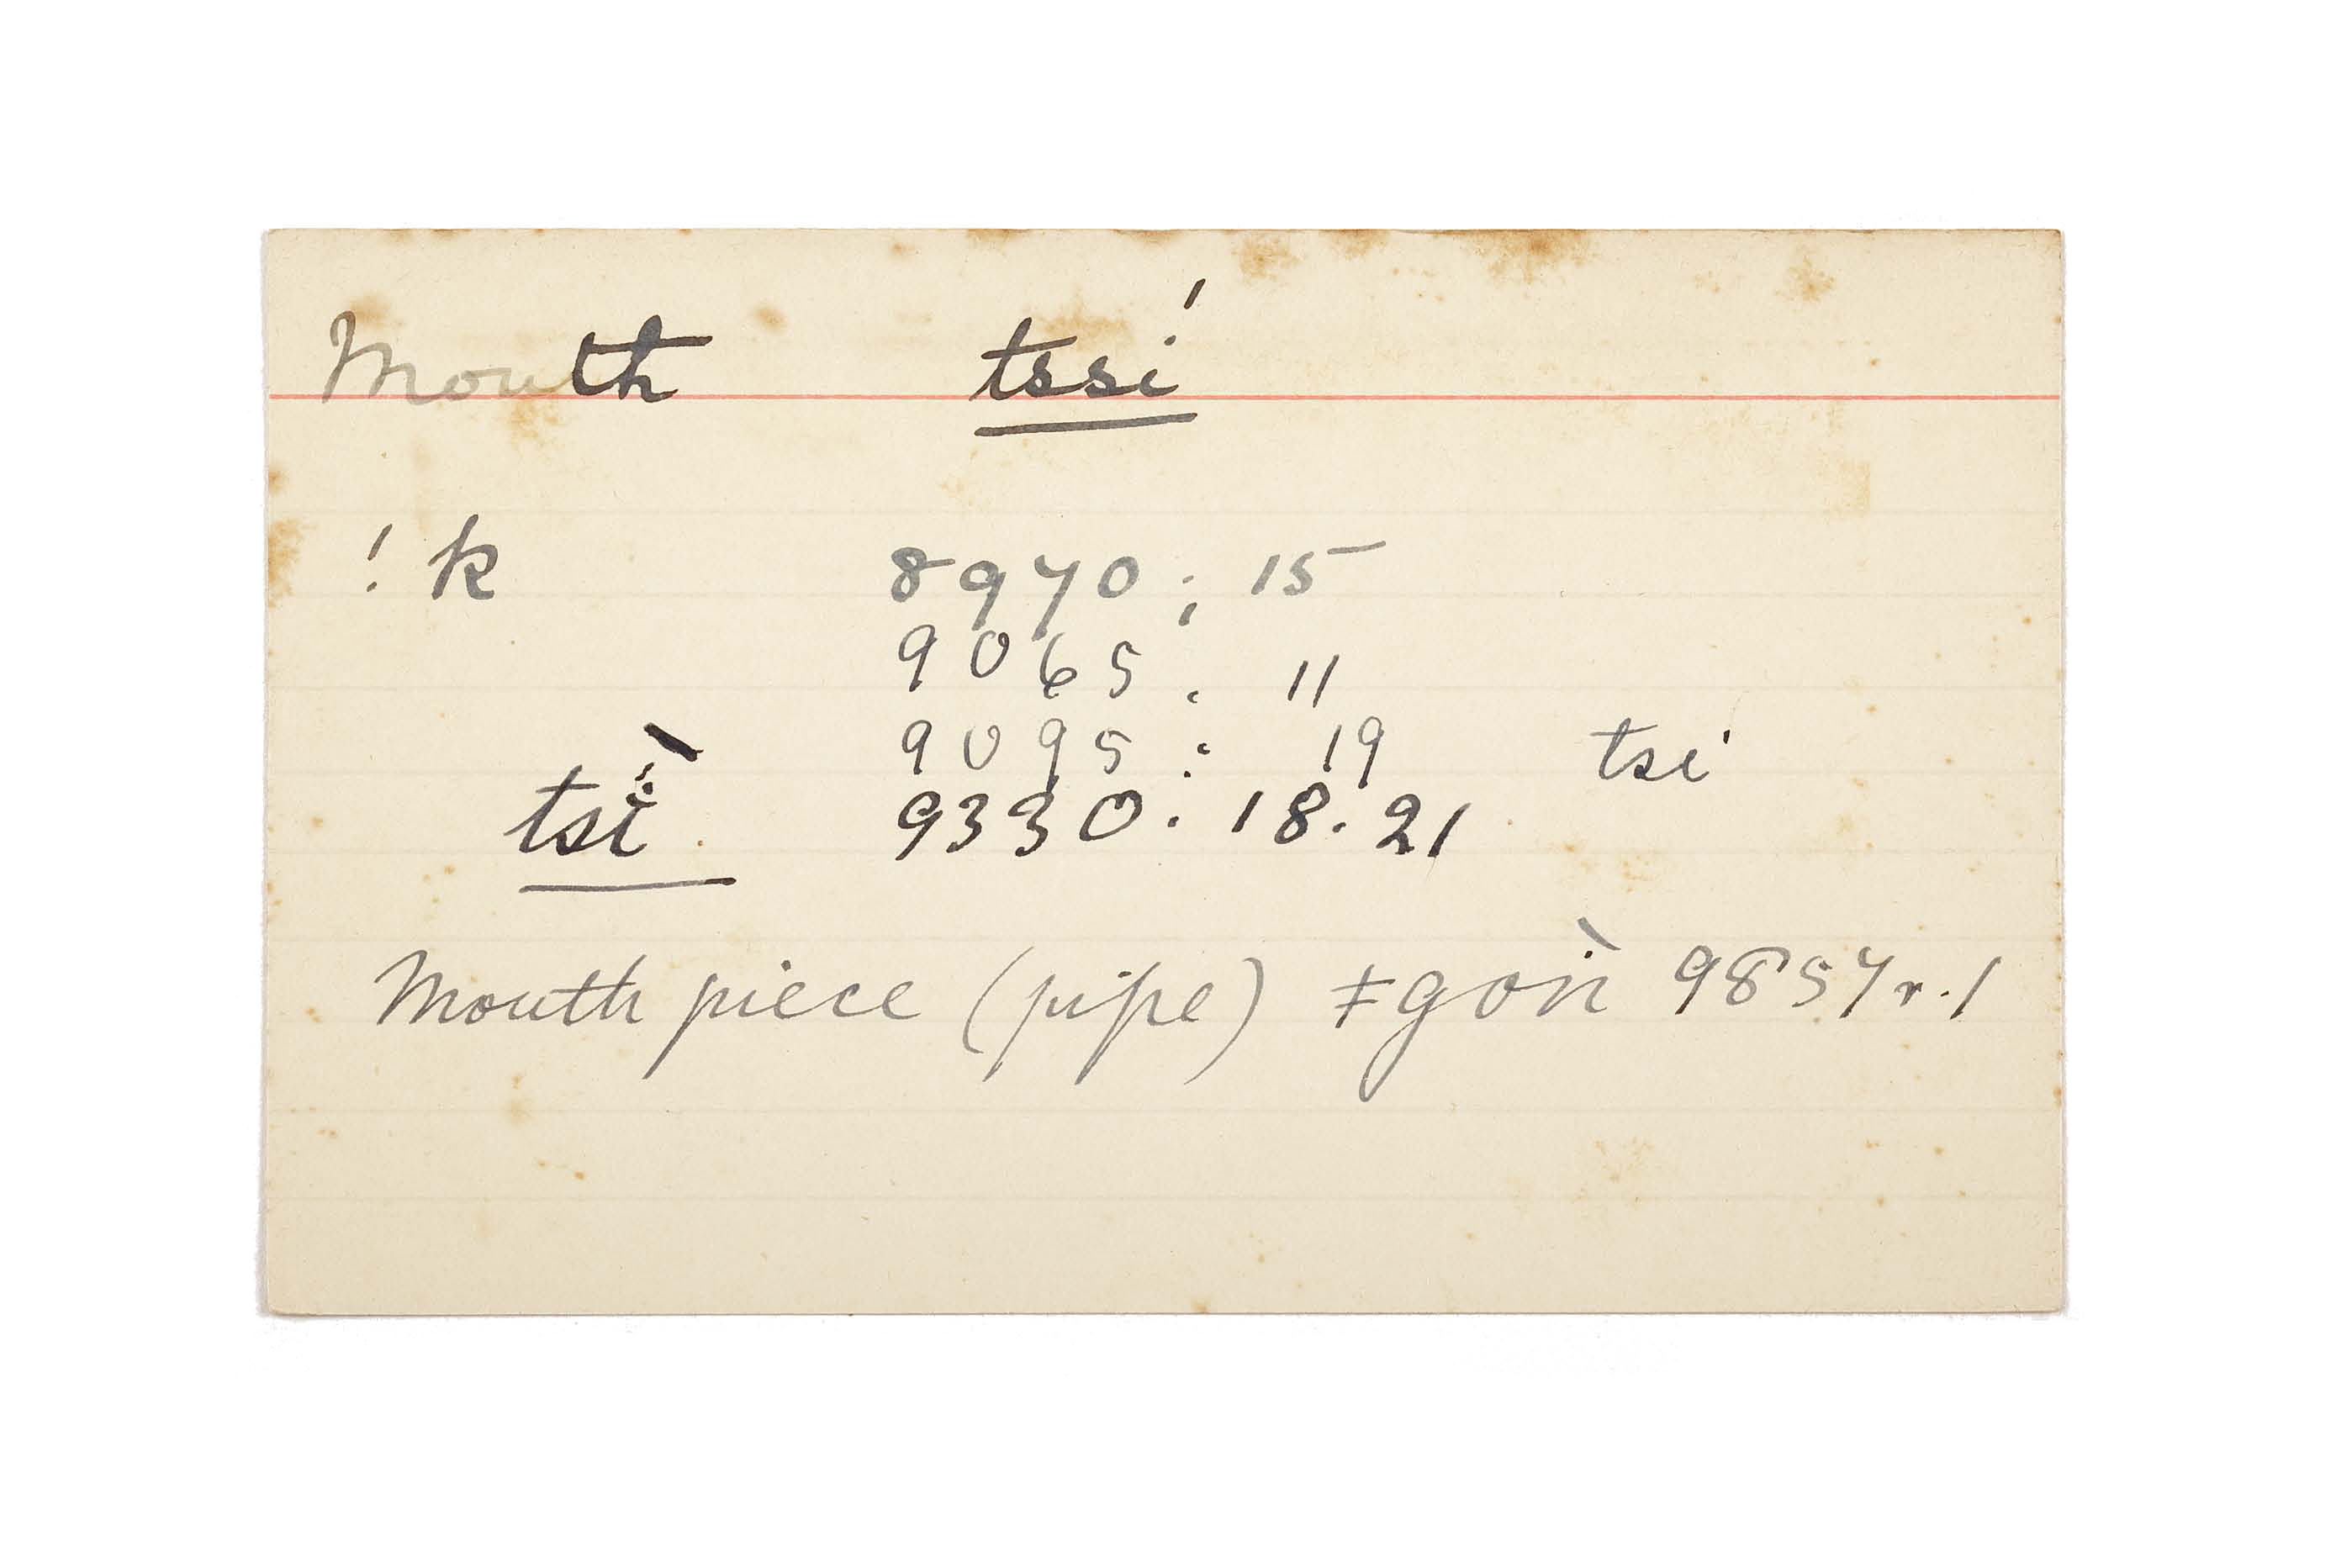 Mouth tssí
! k 8970 ; 15
9065 : 11
9095 : 19 tsi
tsĭ̀ 9330 : 18. 21
Mouth piece (pipe) ǂgoiǹ 9857 r. 1